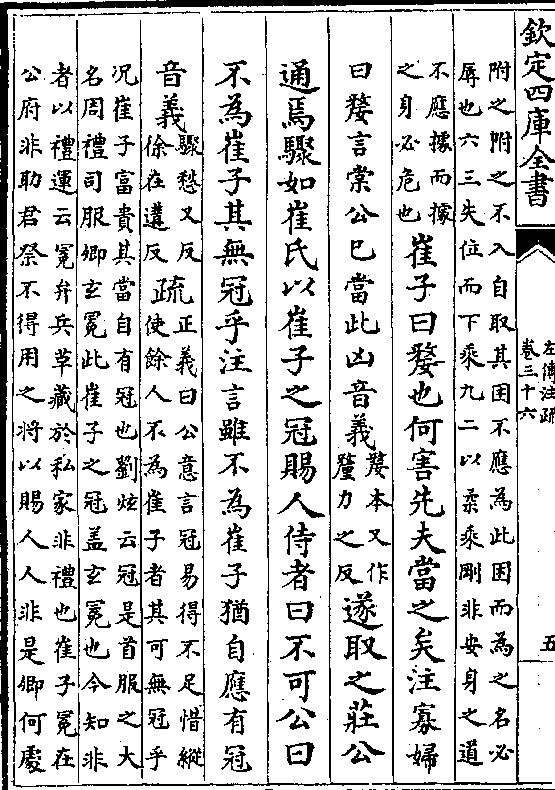 欽定四庫全書
左傳注疏
卷三十六
五
附之附之不入自取其困不應為此困而為之名必
辱也六三失位而下乘九二以柔乘剛非安身之道
不應據而據
之身必危也
崔子曰嫠也何害先夫當之矣注寡婦
曰嫠言棠公已當此凶音義
嫠本又作
釐力之反
遂取之莊公
通焉驟如崔氏以崔子之冠賜人侍者曰不可公曰
不為崔子其無冠乎注言雖不為崔子猶自應有冠
音義
驟愁又反
徐在遘反
疏
正義曰公意言冠易得不足惜縱
使餘人不為崔子者其可無冠乎
况崔子富貴其當自有冠也劉炫云冠是首服之大
名周禮司服卿玄冕此崔子之冠盖玄冕也今知非
者以禮運云冕弁兵革藏於私家非禮也崔子冕在
公府非助君祭不得用之將以賜人人非是卿何處